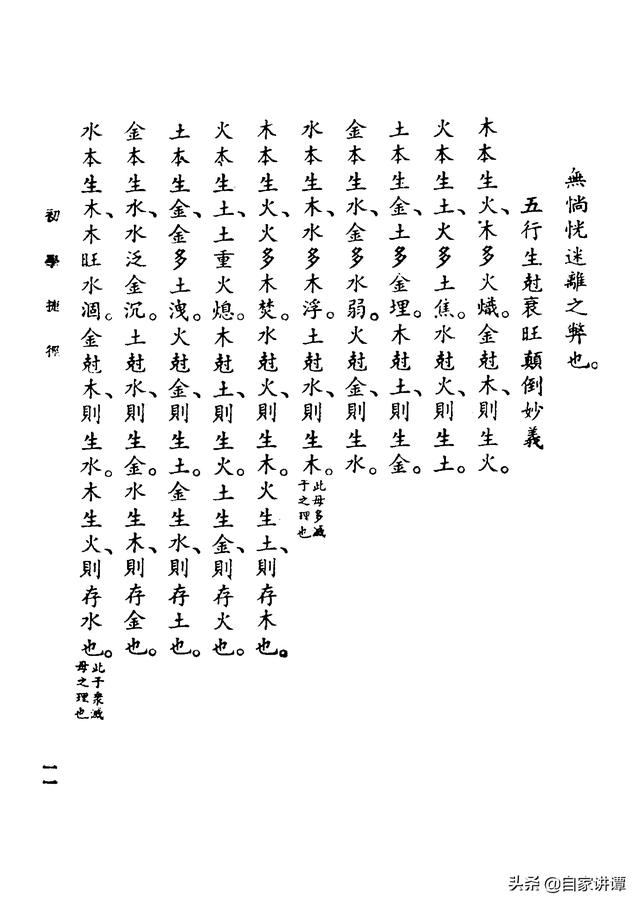 無惝恍迷離之弊也。
五行生尅衰旺顛倒妙義
木本生火、木多火熾。金尅木、則生火。
火本生土、火多土焦。水尅火、則生土。
土本生金、土多金埋。木尅土、則生金。
金本生水、金多水弱。火尅金、則生水。
水本生木、水多木浮。土尅水、則生木。此母多滅子之理也
木本生火、火多木焚。水尅火、則生木。火生土、則存木也。
火本生土、土重火熄。木尅土、則生火。土生金、則存火也。
土本生金、金多土洩。火尅金、則生土。金生水、則存土也。
金本生水、水泛金沉。土尅水、則生金。水生木、則存金也。
水本生木、木旺水涸。金尅木、則生水。木生火、則存水也。此子衆滅母之理也
初學捷徑
一一
头条 @自家讲谭